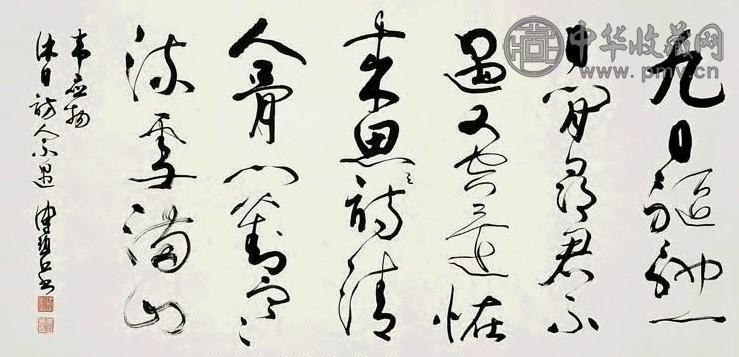 中华收藏网
www.pmv.cn
九日驅馳一
日閒尋君不
遇又空還怪
來思詩清
人骨门對寒
流雪满山
韦应物
休日訪人不遇